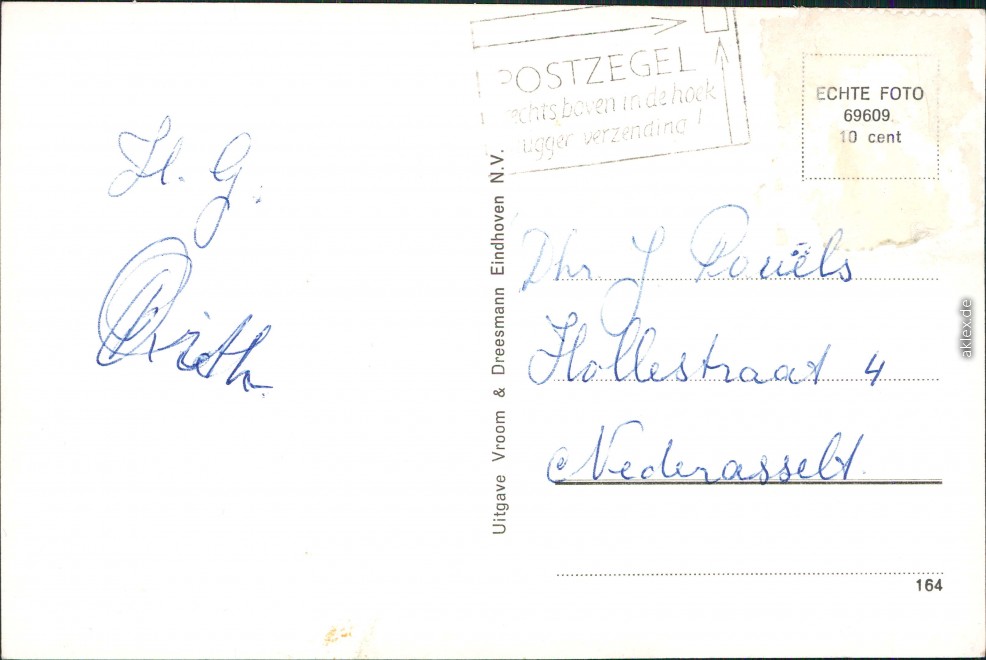 POSTZEGEL
rechts boven in de hoek
vlugger verzending !
ECHTE FOTO
69609.
10 cent
H. G.
Uitgave Vroom & Dreesmann Eindhoven N.V.
Dhr J Pouëls
Hollestraat 4
Nederasselt.
164
aklex.de